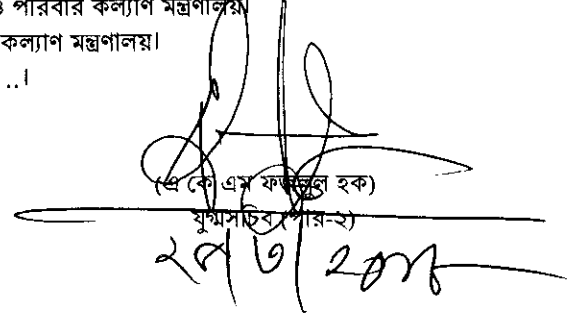 ও পরিবার কল্যাণ মন্ত্রণালয়
কল্যাণ মন্ত্রণালয়।
..।
(এ কে এম ফজলুল হক)
যুগ্মসচিব (পার-২)